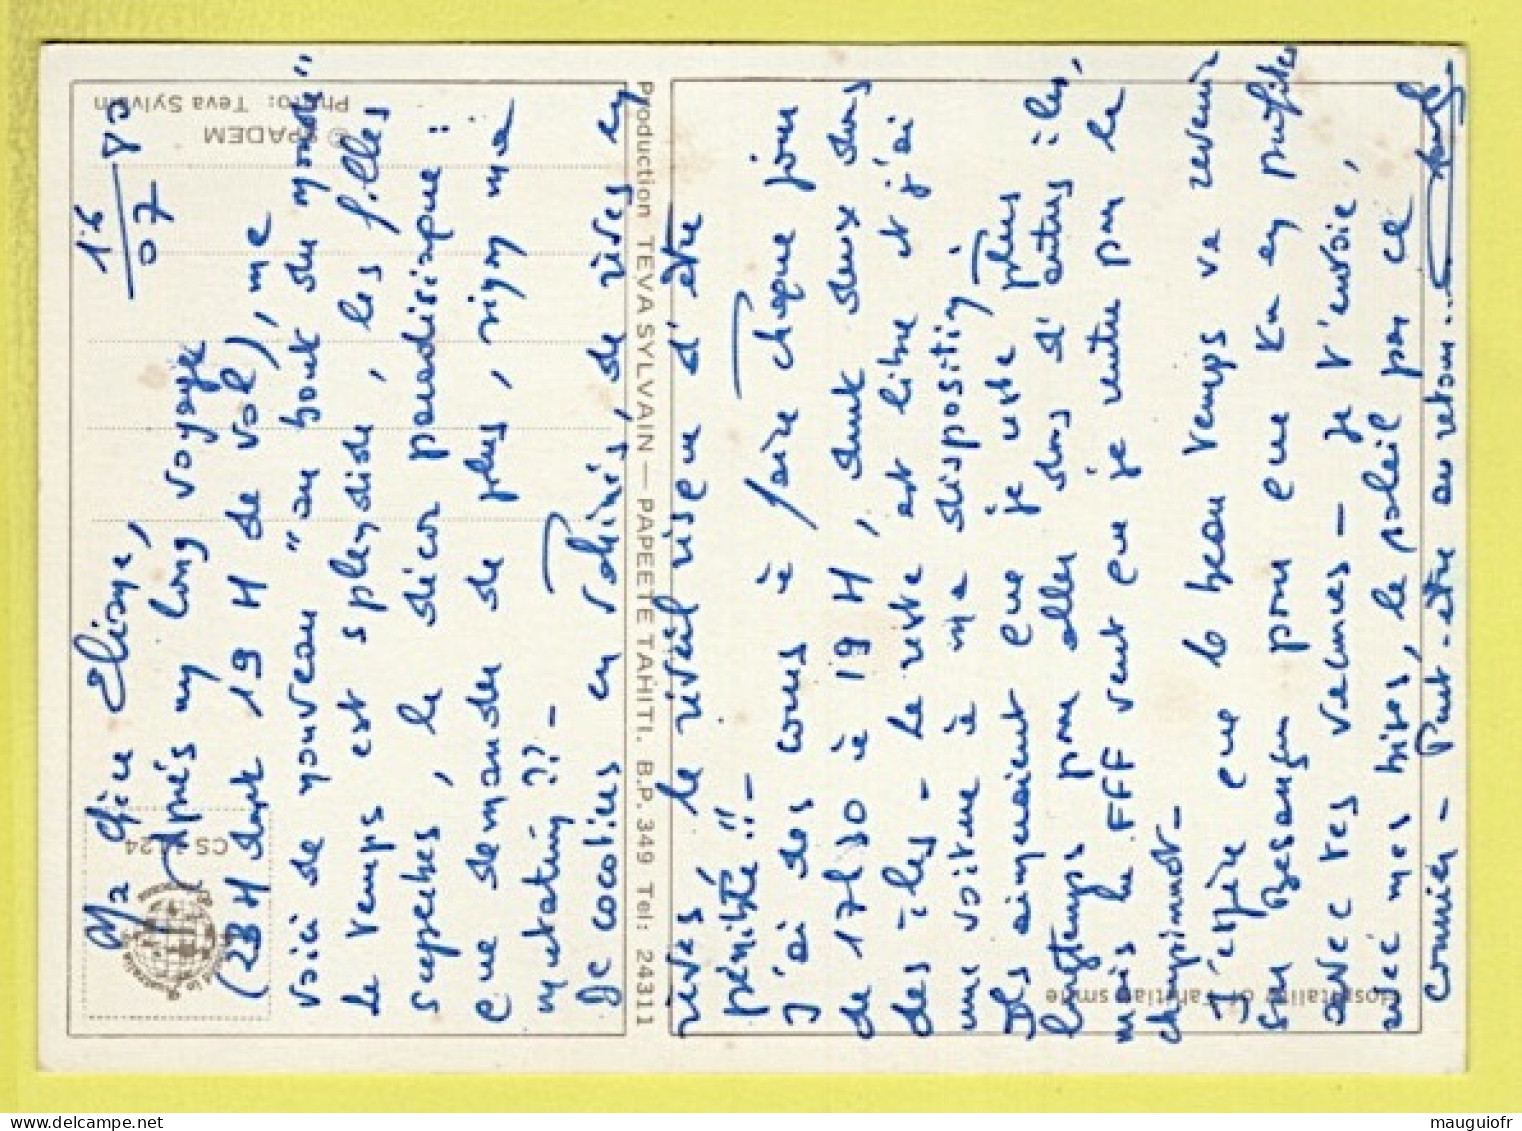 16/07 80
Ma chère Eliane,
Après my long voyage
(23 H dont 19 H de vol), me
voici de nouveau "au bout du monde"
Le temps est splendide, les filles
superbes, le décor paradisiaque :
que demander de plus, sinon ma
mutation ?? -
De cocotiers en Tahinés, de rêves en
rêves le réveil risque d'être
pénible !! -
J'ai des cours à faire chaque jour
de 17h30 à 19 H, sauf deux dans
des îles - Le reste est libre et j'ai
une voiture à ma disposition
Ils aimeraient que je reste plus
longtemps pour aller dans d'autres îles,
mais la FFF veut que je rentre par le
championnat -
J'espère que le beau temps va revenir
sur Besançon pour que tu en profites
avec tes vacances - Je t'envoie,
avec mes bises, le soleil par ce
courrier - Peut-être au retour...
© SPADEM
Photo: Teva Sylvain
Production TEVA SYLVAIN — PAPEETE TAHITI. B.P. 349 Tel: 24311
Hospitality of Tahitian smile